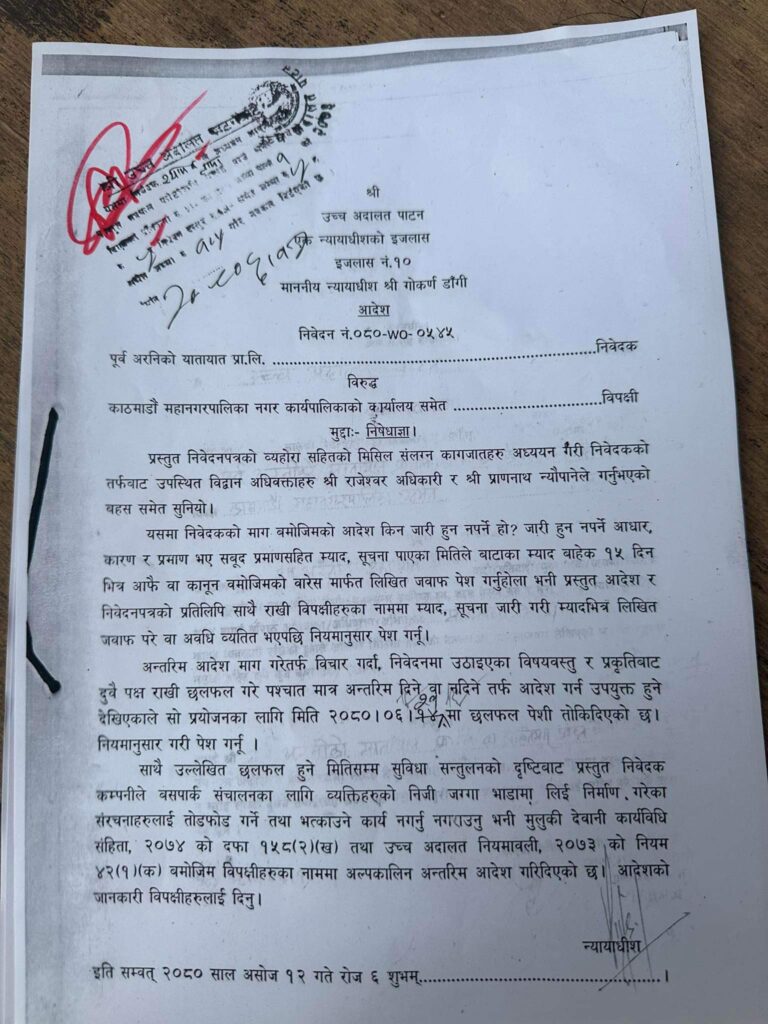 श्री उच्च अदालत पाटन
श्री
उच्च अदालत पाटन
एक न्यायाधीशको इजलास
इजलास नं.१०
माननीय न्यायाधीश श्री गोकर्ण डाँगी
आदेश
निवेदन नं.०८०-WO-०५४५
पूर्व अरनिको यातायात प्रा.लि. ............................................................निवेदक
विरुद्ध
काठमाडौं महानगरपालिका नगर कार्यपालिकाको कार्यालय समेत ...........................विपक्षी
मुद्दाः- निषेधाज्ञा।
प्रस्तुत निवेदनपत्रको व्यहोरा सहितको मिसिल संलग्न कागजातहरु अध्ययन गरी निवेदकको
तर्फबाट उपस्थित विद्वान अधिवक्ताहरु श्री राजेश्वर अधिकारी र श्री प्राणनाथ न्यौपानेले गर्नुभएको
बहस समेत सुनियो।
यसमा निवेदकको माग बमोजिमको आदेश किन जारी हुन नपर्ने हो? जारी हुन नपर्ने आधार,
कारण र प्रमाण भए सबूद प्रमाणसहित म्याद, सूचना पाएका मितिले बाटाका म्याद बाहेक १५ दिन
भित्र आफै वा कानून बमोजिमको वारेस मार्फत लिखित जवाफ पेश गर्नुहोला भनी प्रस्तुत आदेश र
निवेदनपत्रको प्रतिलिपि साथै राखी विपक्षीहरुका नाममा म्याद, सूचना जारी गरी म्यादभित्र लिखित
जवाफ परे वा अवधि व्यतित भएपछि नियमानुसार पेश गर्नू।
अन्तरिम आदेश माग गरेतर्फ विचार गर्दा, निवेदनमा उठाइएका विषयवस्तु र प्रकृतिबाट
दुवै पक्ष राखी छलफल गरे पश्चात मात्र अन्तरिम दिने वा नदिने तर्फ आदेश गर्न उपयुक्त हुने
देखिएकाले सो प्रयोजनका लागि मिति २०८०।०६। मा छलफल पेशी तोकिदिएको छ।
नियमानुसार गरी पेश गर्नू ।
साथै उल्लेखित छलफल हुने मितिसम्म सुविधा सन्तुलनको दृष्टिबाट प्रस्तुत निवेदक
कम्पनीले बसपार्क संचालनका लागि व्यक्तिहरुको निजी जग्गा भाडामा लिई निर्माण गरेका
संरचनाहरुलाई तोडफोड गर्ने तथा भत्काउने कार्य नगर्नु नगराउनु भनी मुलुकी देवानी कार्यविधि
संहिता, २०७४ को दफा १५८(२)(ख) तथा उच्च अदालत नियमावली, २०७३ को नियम
४२(१)(क) बमोजिम विपक्षीहरुका नाममा अल्पकालिन अन्तरिम आदेश गरिदिएको छ। आदेशको
जानकारी विपक्षीहरुलाई दिनु।
न्यायाधीश
इति सम्वत् २०८० साल असोज १२ गते रोज ६ शुभम्.............................................।